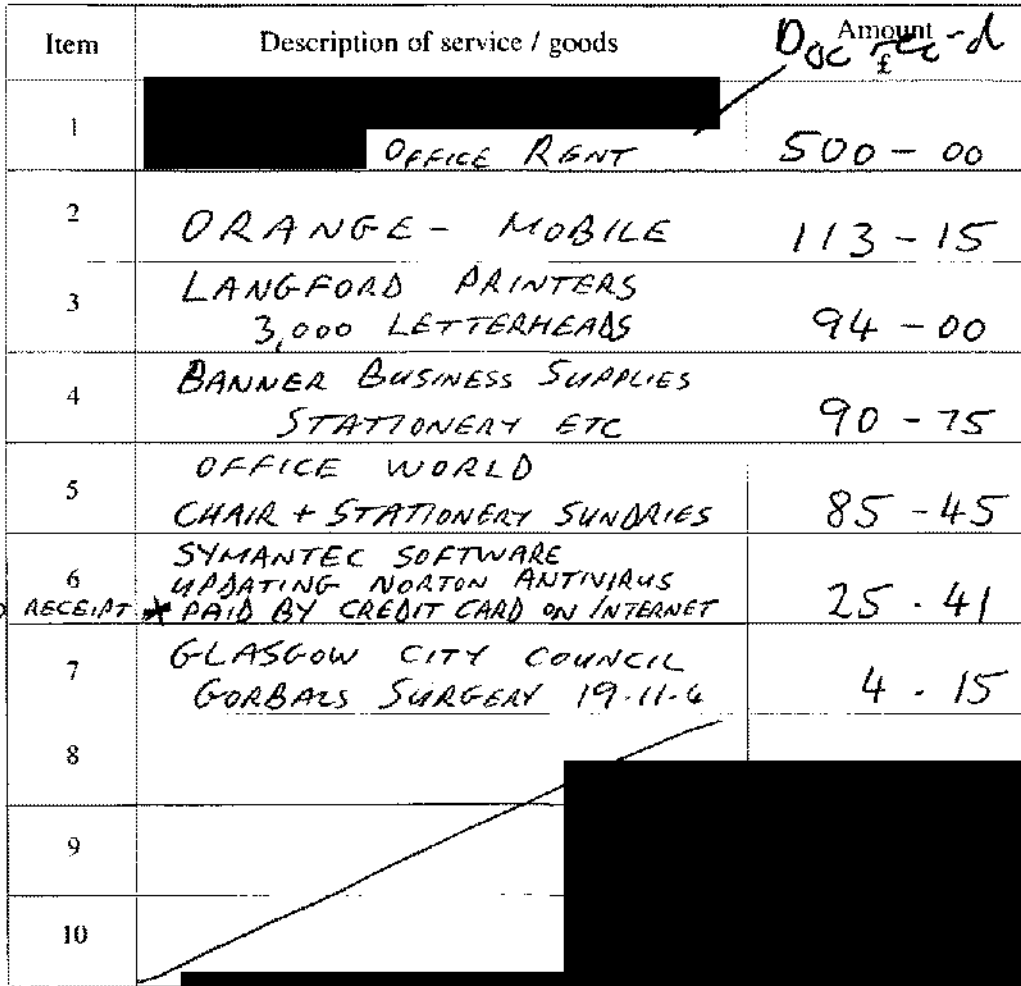 Item Description of service / goods Amount
£
Doc rec-d
1
OFFICE RENT 500-00
2 ORANGE - MOBILE 113-15
3 LANGFORD PRINTERS
3,000 LETTERHEADS 94-00
4 BANNER BUSINESS SUPPLIES
STATIONERY ETC 90-75
5 OFFICE WORLD
CHAIR + STATIONERY SUNDRIES 85-45
6 SYMANTEC SOFTWARE
UPDATING NORTON ANTIVIRUS
RECEIPT * PAID BY CREDIT CARD ON INTERNET 25.41
7 GLASGOW CITY COUNCIL
GORBALS SURGERY 19.11.4 4.15
8
9
10